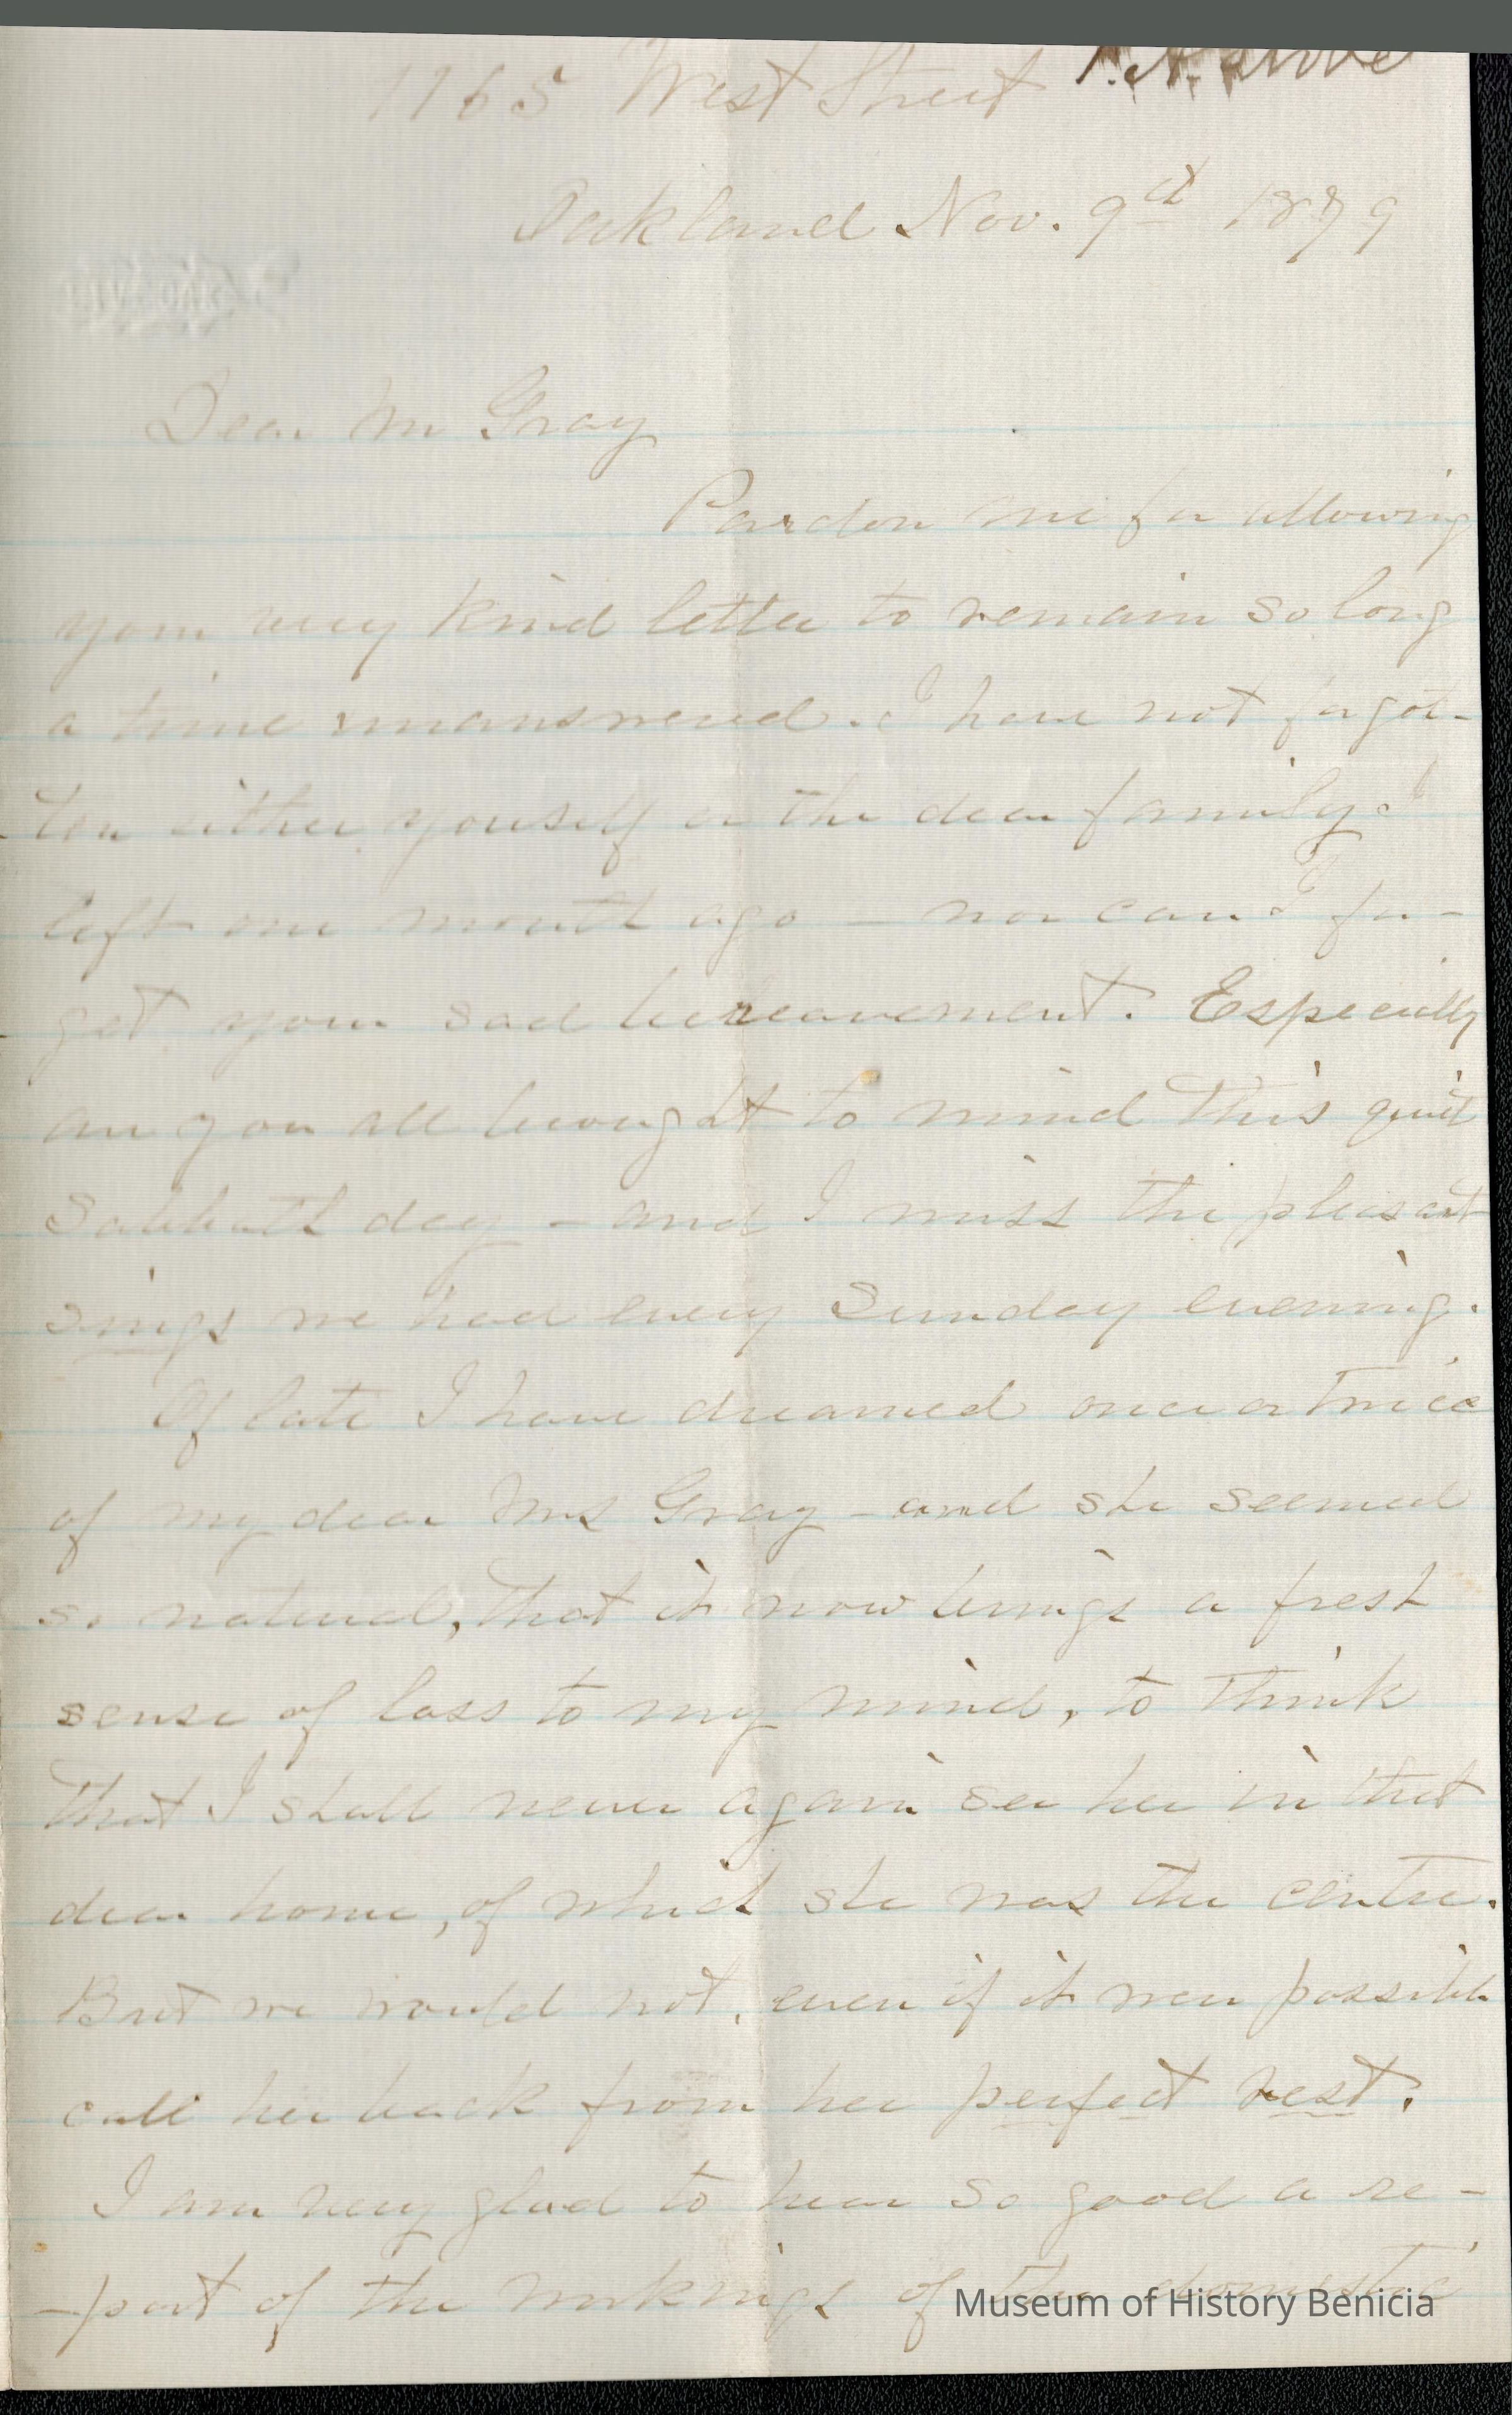 1165 West Street
Oakland Nov. 9th 1879
Dear Mr Gray
Pardon me for allowing
your very kind letter to remain so long
a time unanswered. I have not forgot-
ten either yourself or the dear family I
left one month ago - nor can I for-
get your sad bereavement. Especially
are you all brought to mind this quiet
Sabbath day - and I miss the pleasant
sings we had every Sunday evening.
Of late I have dreamed once or twice
of my dear Mrs Gray - and she seemed
so natural, that it now brings a fresh
sense of loss to my mind, to think
that I shall never again see her in that
dear home, of which she was the center.
But we would not, even if it were possible
call her back from her perfect rest.
I am very glad to hear so good a re-
-port of the workings of the domestic
Museum of History Benicia